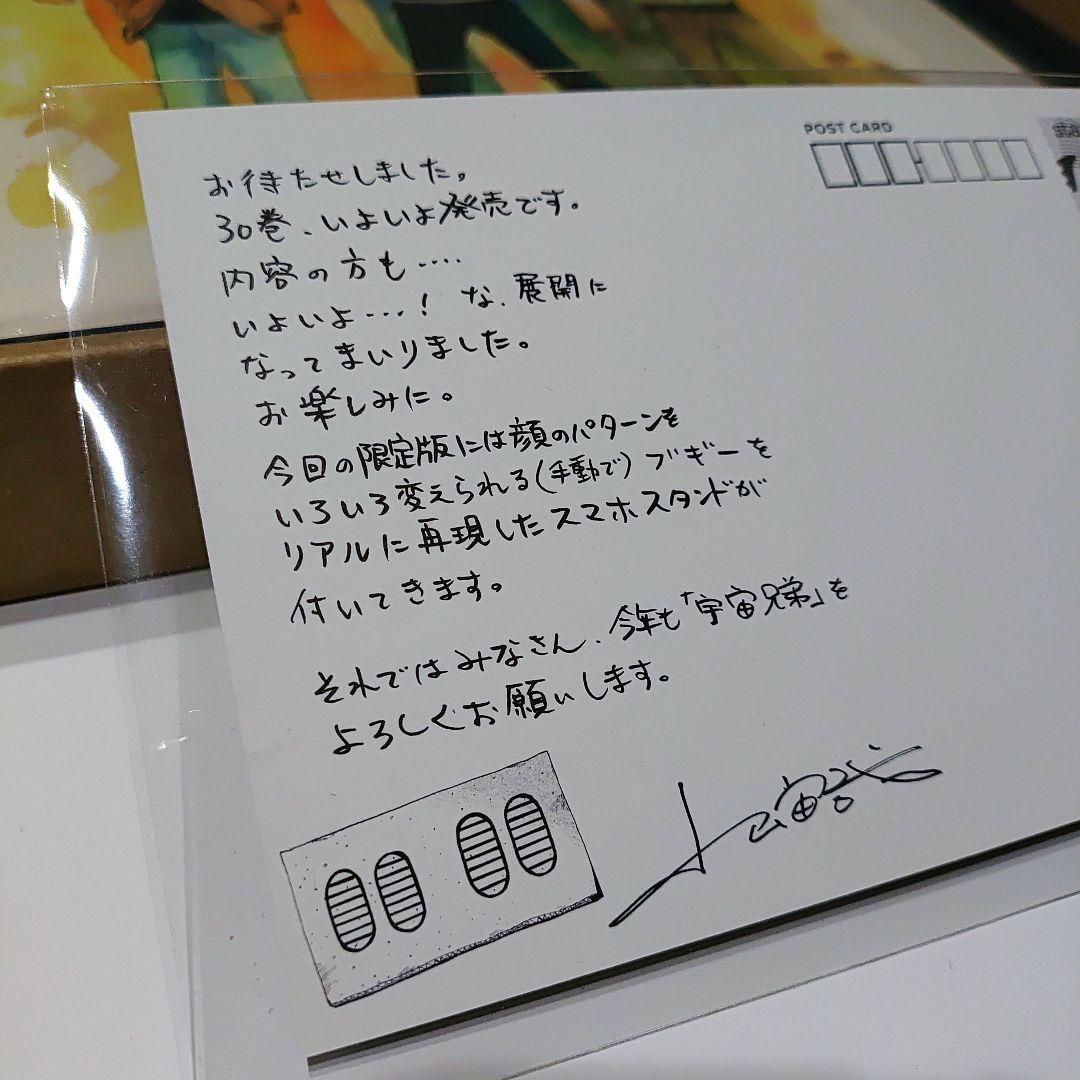 POST CARD
お待たせしました。
30巻、いよいよ発売です。
内容の方も‥‥
いよいよ…! な、展開に
なってまいりました。
お楽しみに。
今回の限定版には顔のパターンを
いろいろ変えられる(手動で)ブギーを
リアルに再現したスマホスタンドが
付いてきます。
それではみなさん、今年も「宇宙兄弟」を
よろしくお願いします。